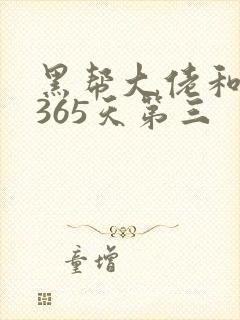 黑帮大佬和
365天第三
童增